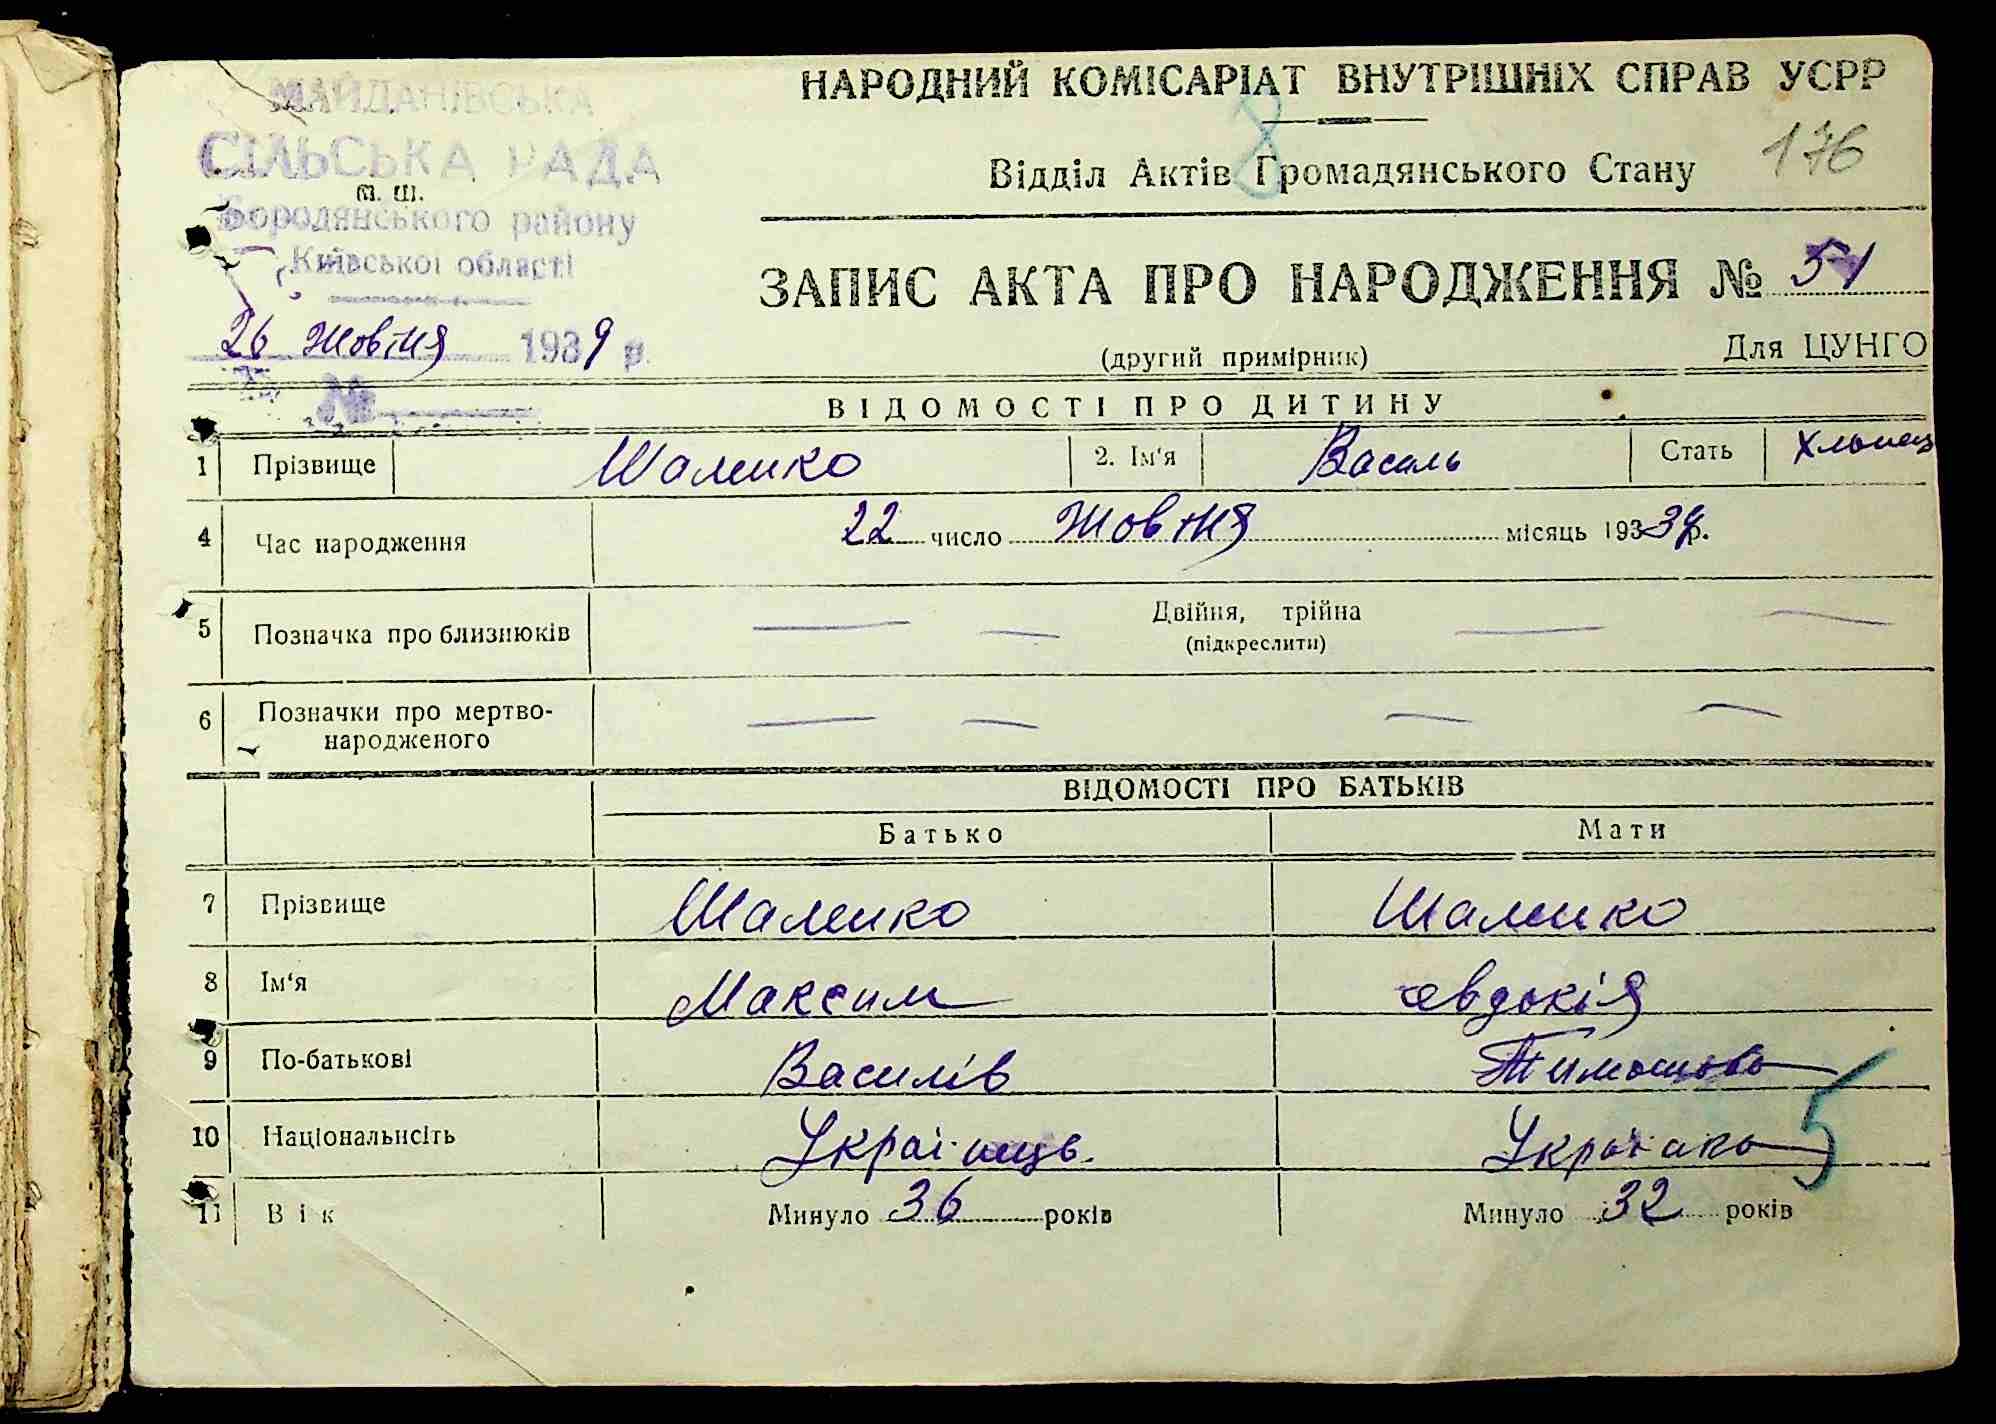 МАЙДАНІВСЬКА
СІЛЬСЬКА РАДА
м. ш.
Бородянського району
Київської області
26 жовтня 1939 р.
№
НАРОДНИЙ КОМІСАРІАТ ВНУТРІШНІХ СПРАВ УСРР
8
Відділ Актів Громадянського Стану
176
ЗАПИС АКТА ПРО НАРОДЖЕННЯ № 51
(другий примірник)
Для ЦУНГО
ВІДОМОСТІ ПРО ДИТИНУ
1 Прізвище Шаленко 2. Ім'я Василь Стать Хлопець
4 Час народження 22 число жовтня місяць 193 39 р.
5 Позначка про близнюків Двійня, трійна
(підкреслити)
6 Позначки про мертво-
народженого
ВІДОМОСТІ ПРО БАТЬКІВ
Батько Мати
7 Прізвище Шаленко Шаленко
8 Ім'я Максим Євдокія
9 По-батькові Василів Тимошова
10 Національнсіть Українець. Українка
5
11 Вік Минуло 36 років Минуло 32 років